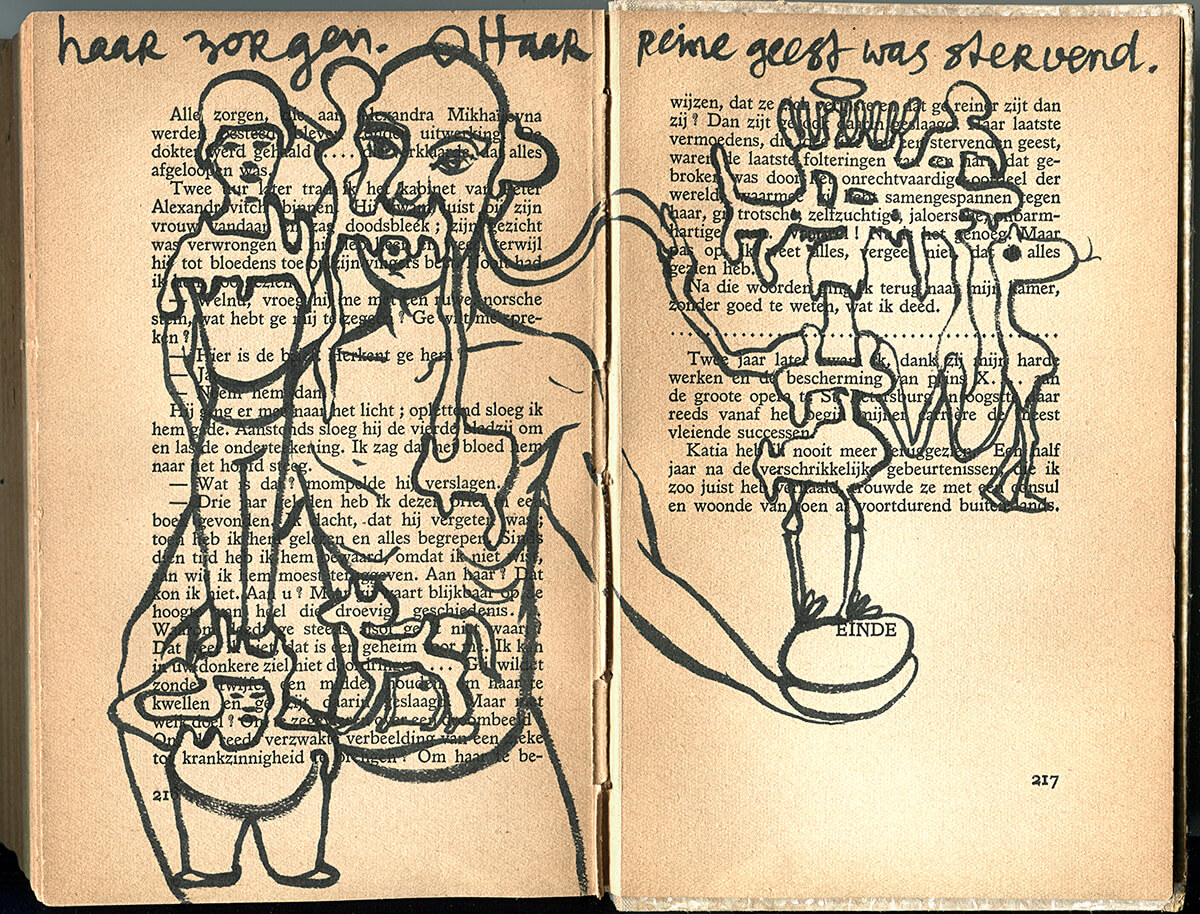 haar zorgen. Haar reine geest was stervend.
Alle zorgen, die aan Alexandra Mikhaïlovna
werden besteed, bleven zonder uitwerking. De
dokter werd gehaald .... de verklaarde, dat alles
afgeloopen was.
Twee uur later trad ik het kabinet van Peter
Alexandrovitch binnen. Hij kwam juist bij zijn
vrouw vandaan en zag doodsbleek; zijn gezicht
was verwrongen hij terwijl
hij tot bloedens toe op zijn vingers beet. Nooit had
ik hem zoo gezien.
— Welnu, vroeg hij me met een ruwe, norsche
stem, wat hebt ge mij te zeggen? Ge wilt me spre-
ken?
— Hier is de brief. Herkent ge hem?
— Ja.
— Neem hem dan.
Hij ging er mee naar het licht; oplettend sloeg ik
hem gade. Aanstonds sloeg hij de vierde bladzij om
en las de onderteekening. Ik zag dat het bloed hem
naar het hoofd steeg.
— Wat is dat? mompelde hij verslagen.
— Drie jaar geleden heb ik dezen brief in een
boek gevonden. Ik dacht, dat hij vergeten was;
toen heb ik hem gelezen en alles begrepen. Sinds
dien tijd heb ik hem bewaard, omdat ik niet wist,
aan wie ik hem moest teruggeven. Aan haar? Dat
kon ik niet. Aan u? Maar gij waart blijkbaar op de
hoogte van heel die droevige geschiedenis.
Waarom ge steeds niet waar?
Dat weet ik niet, dat is een geheim voor me. Ik kan
in uw donkere ziel niet doordringen .... Ge wildet
zonder twijfel een midden houden om haar te
kwellen en ge zijt daarin geslaagd. Maar met
welk doel? Om te zegevieren over een droombeeld
Om reeds verzwakte verbeelding van een zieke
tot krankzinnigheid te brengen? Om haar te be-
216
wijzen, dat ze zich vergiste en dat ge reiner zijt dan
zij? Dan zijt ge ook daarin geslaagd! Haar laatste
vermoedens, die van een stervenden geest,
waren de laatste folteringen van een hart dat ge-
broken was door het onrechtvaardig oordeel der
wereld waarmee gij hebt samengespannen tegen
haar, gij trotsche, zelfzuchtige, jaloersche, onbarm-
hartige Nu is het genoeg. Maar
pas op, ik weet alles, vergeet niet dat ik alles
gezien heb.
Na die woorden ging ik terug naar mijn kamer,
zonder goed te weten, wat ik deed.
Twee jaar later kwam ik, dank zij mijn harde
werken en de bescherming van prins X. aan
de groote opera te St. Petersburg oogstte daar
reeds vanaf het begin mijner carrière de meest
vleiende successen.
Katia heb ik nooit meer teruggezien. Een half
jaar na de verschrikkelijke gebeurtenissen, die ik
zoo juist heb verhaald, trouwde ze met een consul
en woonde van toen af voortdurend buitenslands.
EINDE
217